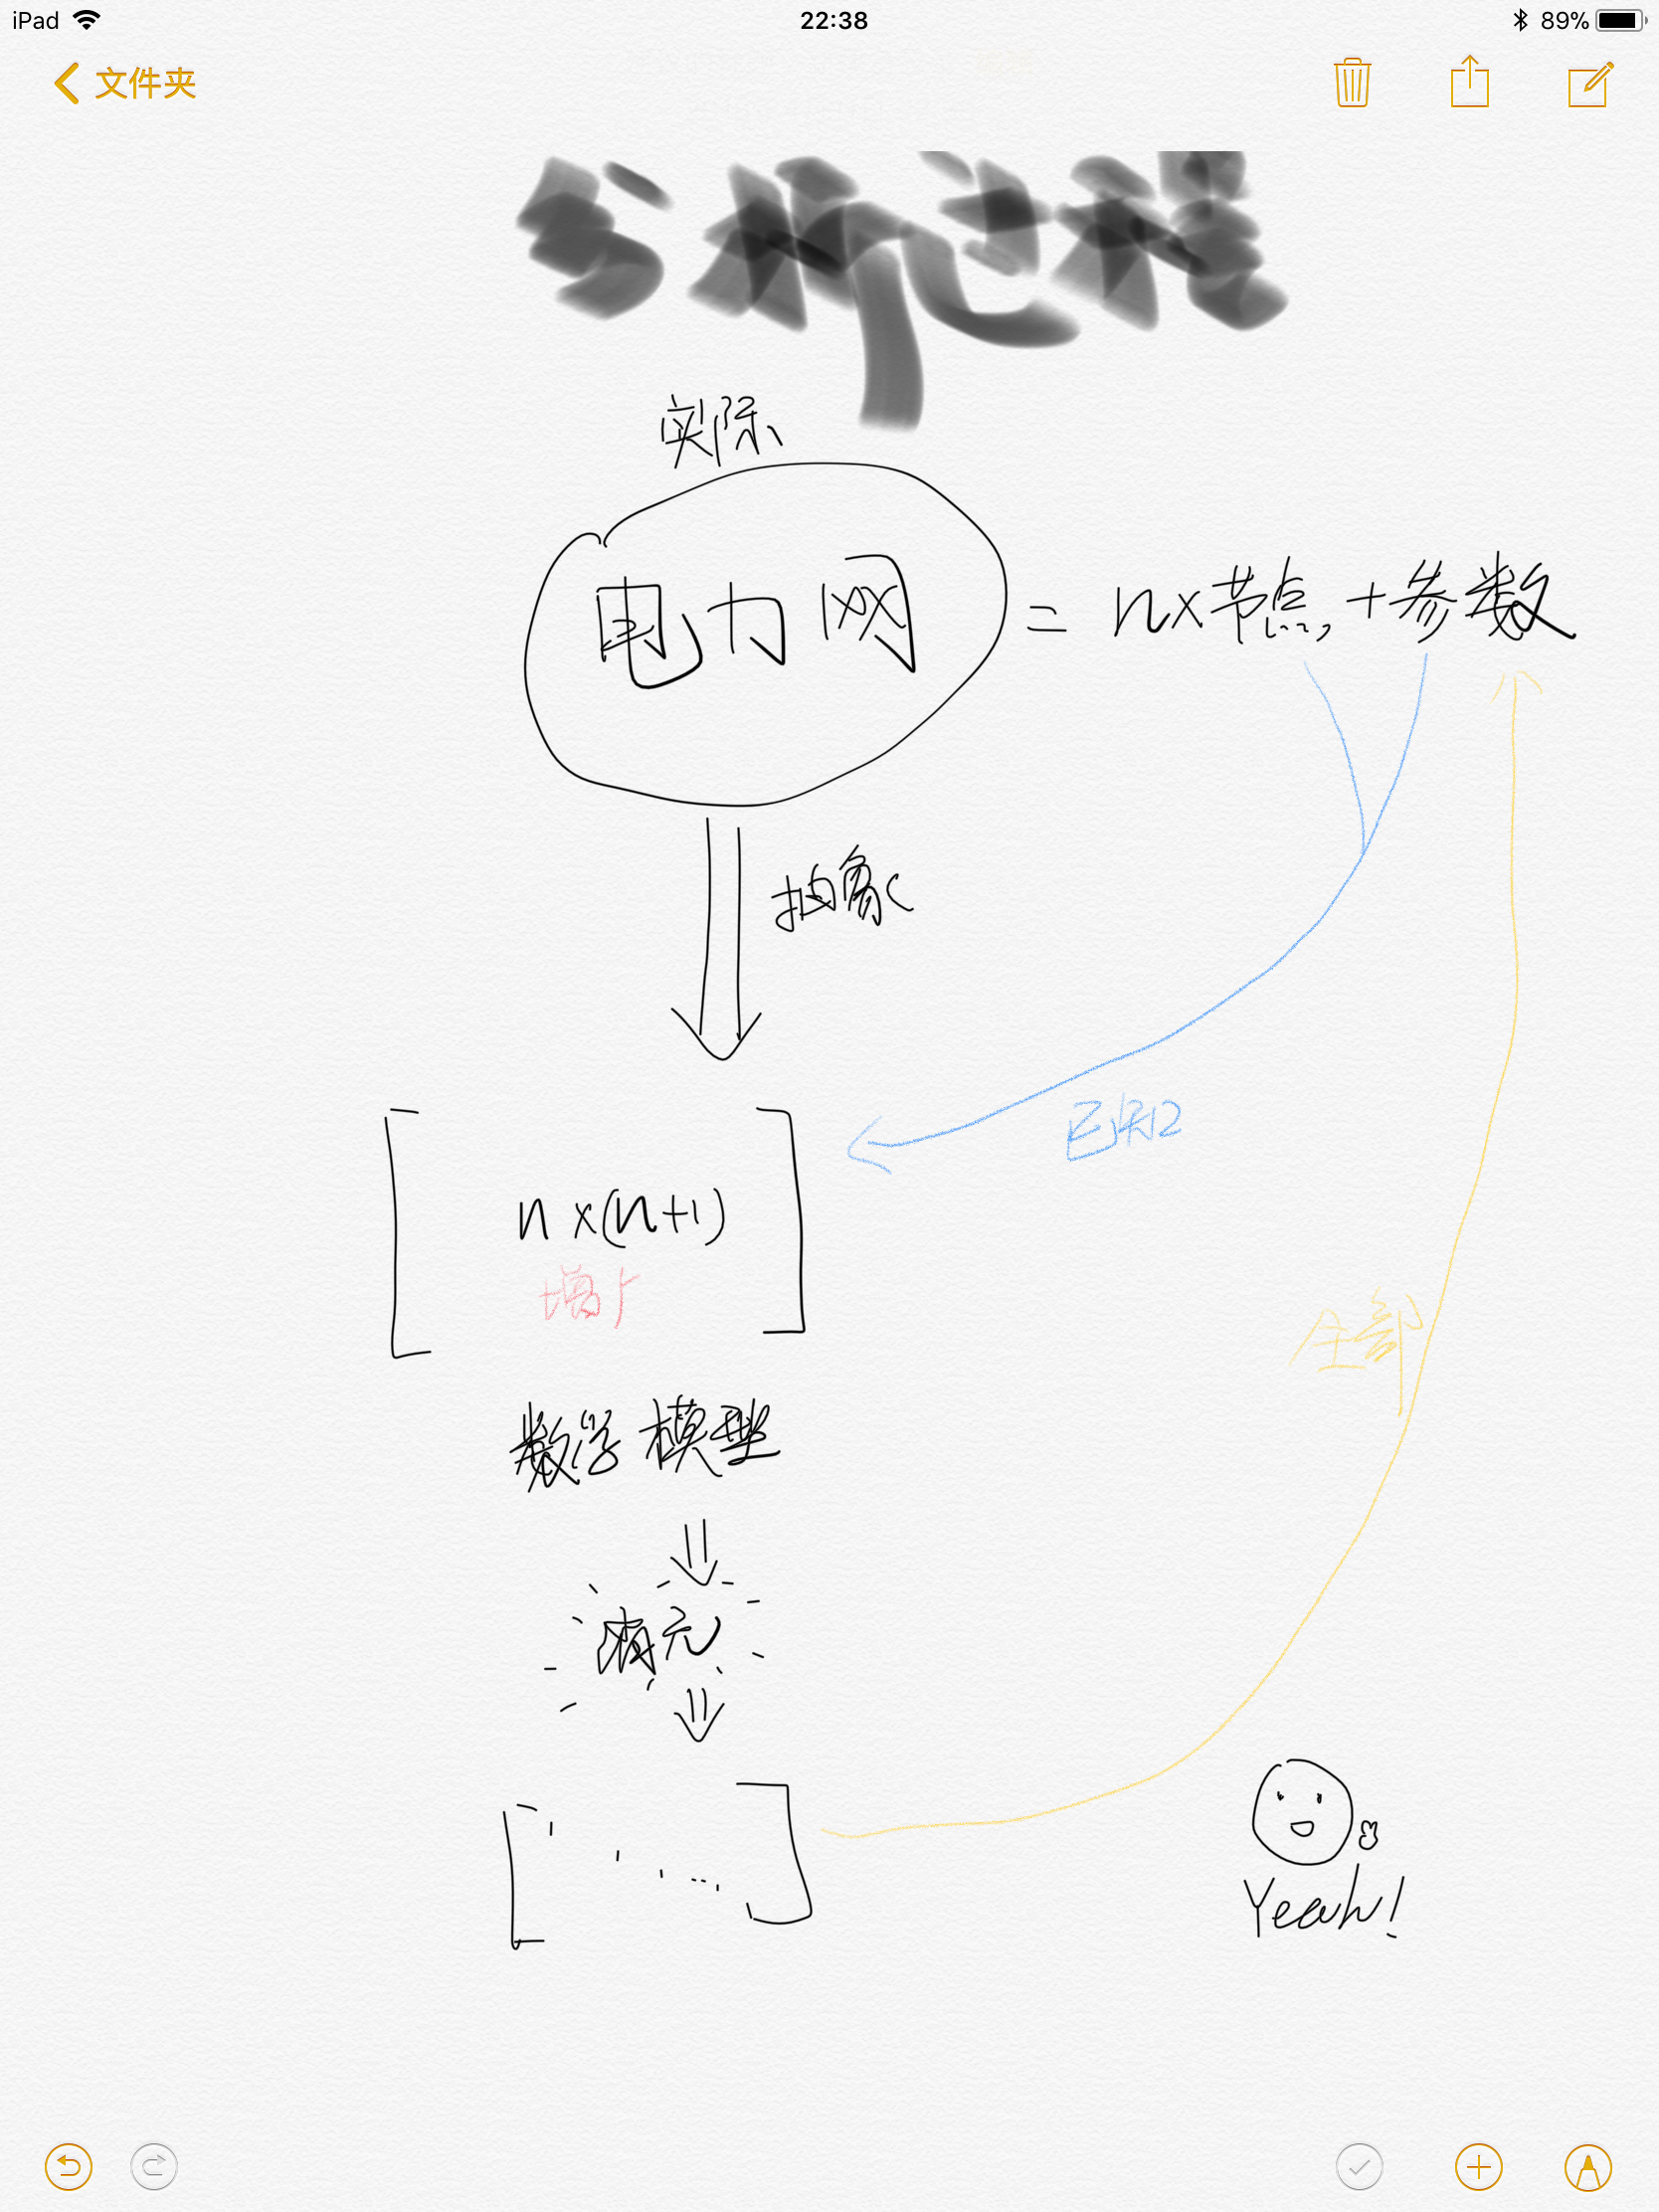 iPad 22:38 89%
文件夹
分析过程
实际
电力网 = n×节点,+参数
抽象
已知
n×(n+1)
增广
全部
数学模型
消元
Yeah!